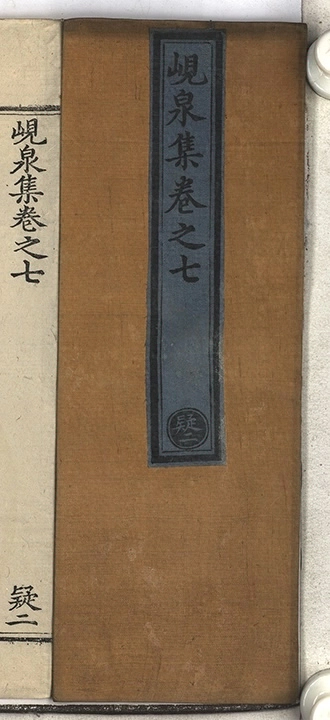 峴泉集卷之七
疑二
峴泉集卷之七
疑二